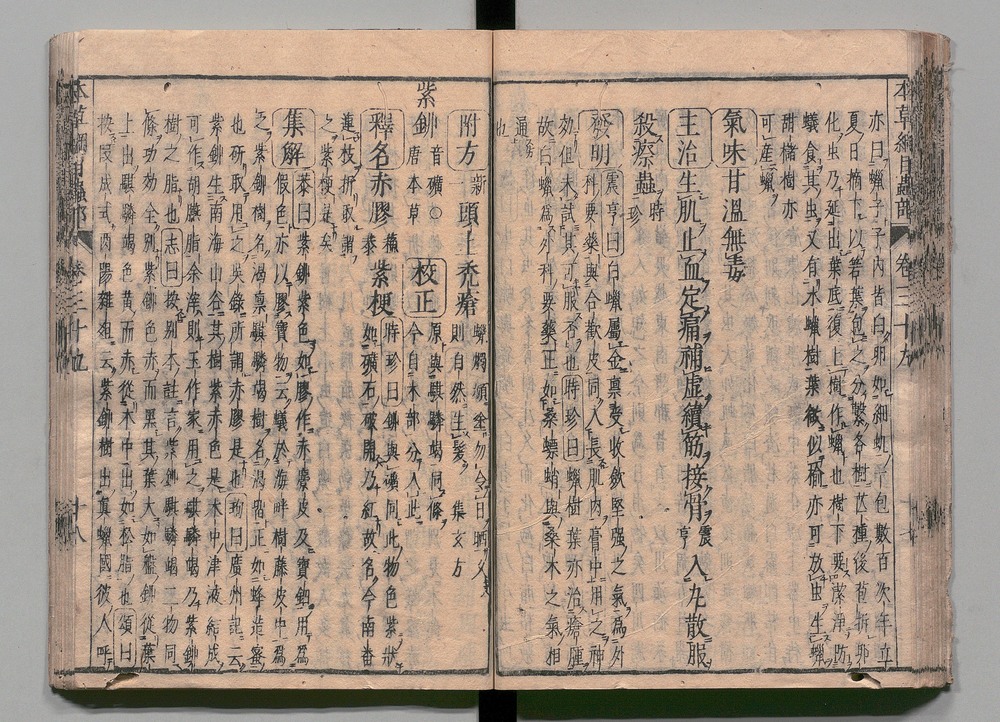 本草綱目蟲部 卷三十九
亦曰蠟子子內皆白卵如細蟣一包數百次年立
夏日摘下以箬葉包之分繫各樹芒種後苞拆卵
化虫乃延出葉底復上樹作蠟也樹下要潔淨防
蟻食其虫又有水蠟樹葉微似榆亦可放虫生蠟
甜櫧樹亦
可產蠟
氣味甘溫無毒
主治生肌止血定痛補虛續筋接骨震亨入丸散服
殺瘵蟲時珍
發明震亨曰白蠟屬金稟受收斂堅强之氣爲外
科要藥與合歡皮同入長肌肉膏中用之神
効但未試其可服否也時珍曰蠟樹葉亦治瘡腫
故白蠟爲外科要藥正如桑螵蛸與桑木之氣相
通也
附方新一頭上禿瘡蠟燭頻塗勿令日晒久
則自然生髮集玄方
紫鉚音礦○唐本草校正原與騏驎竭同條
今自木部分入此
釋名赤膠蘇恭紫梗時珍曰鉚與礦同此物色紫狀
如礦石破開乃紅故名今南番
連枝折取謂
之紫梗是矣
集解恭曰紫鉚紫色如膠作赤麖皮及寶鈿用爲
假色亦以膠寶物云蟻於海畔樹藤皮中爲
之紫鉚樹名渴稟騏驎竭樹名渴留正如蜂造蜜
也研取用之吳錄所謂赤膠是也珣曰廣州記云
紫鉚生南海山谷其樹紫赤色是木中津液結成
可作胡臙脂余滓則玉作家用之騏驎竭乃紫鉚
樹之脂也志曰按別本註言紫鉚騏驎竭二物同
條功効全別紫鉚色赤而黑其葉大如盤鉚從葉
上出騏驎竭色黃而赤從木中出如松脂也頌曰
按段成式酉陽雜俎云紫鉚樹出真臘國彼人呼
本草綱目蟲部 卷三十九 十八